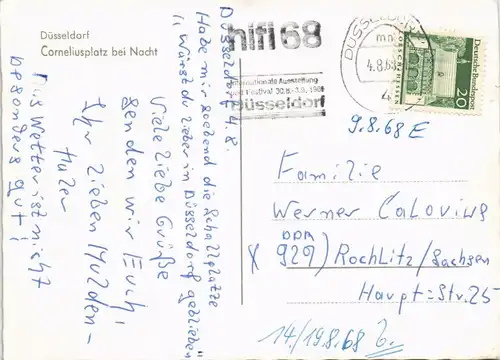 Düsseldorf
Corneliusplatz bei Nacht
hifi 68
Internationale Ausstellung
und Festival 30.8.-3.9.1968
Düsseldorf
DÜSSELDORF
4.8.68
4
Deutsche Bundespost
LORSCH/HESSEN
20
Düsseldorf 4.8.
Habe mir soebend die Schallplatte
„Wärst du lieber in Düsseldorf geblieben"
Viele liebe Grüße
senden wir Euch!
Ihr lieben Mulden-
taler
Das Wetter ist nicht
besonders gut!
9.8.68 E
Familie
Werner Calovius
DDR
X 929) Rochlitz/Sachsen
Haupt-Str. 25
14./19.8.68 b.